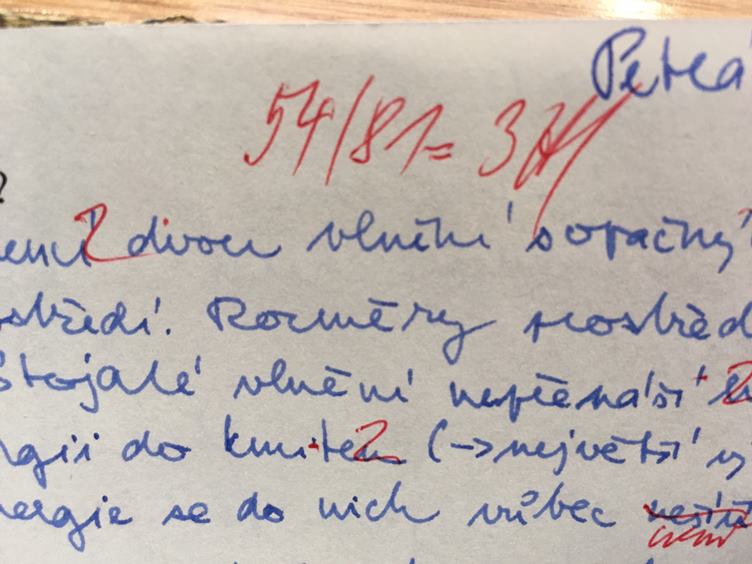 Petrá
54/81 = 3
?
2 dvou vlnění s opačný
ostředí. Rozměry prostřed
Stojaté vlnění nepřenáší
rgii do kmiten 2 (→největší v
nergie se do nich vůbec